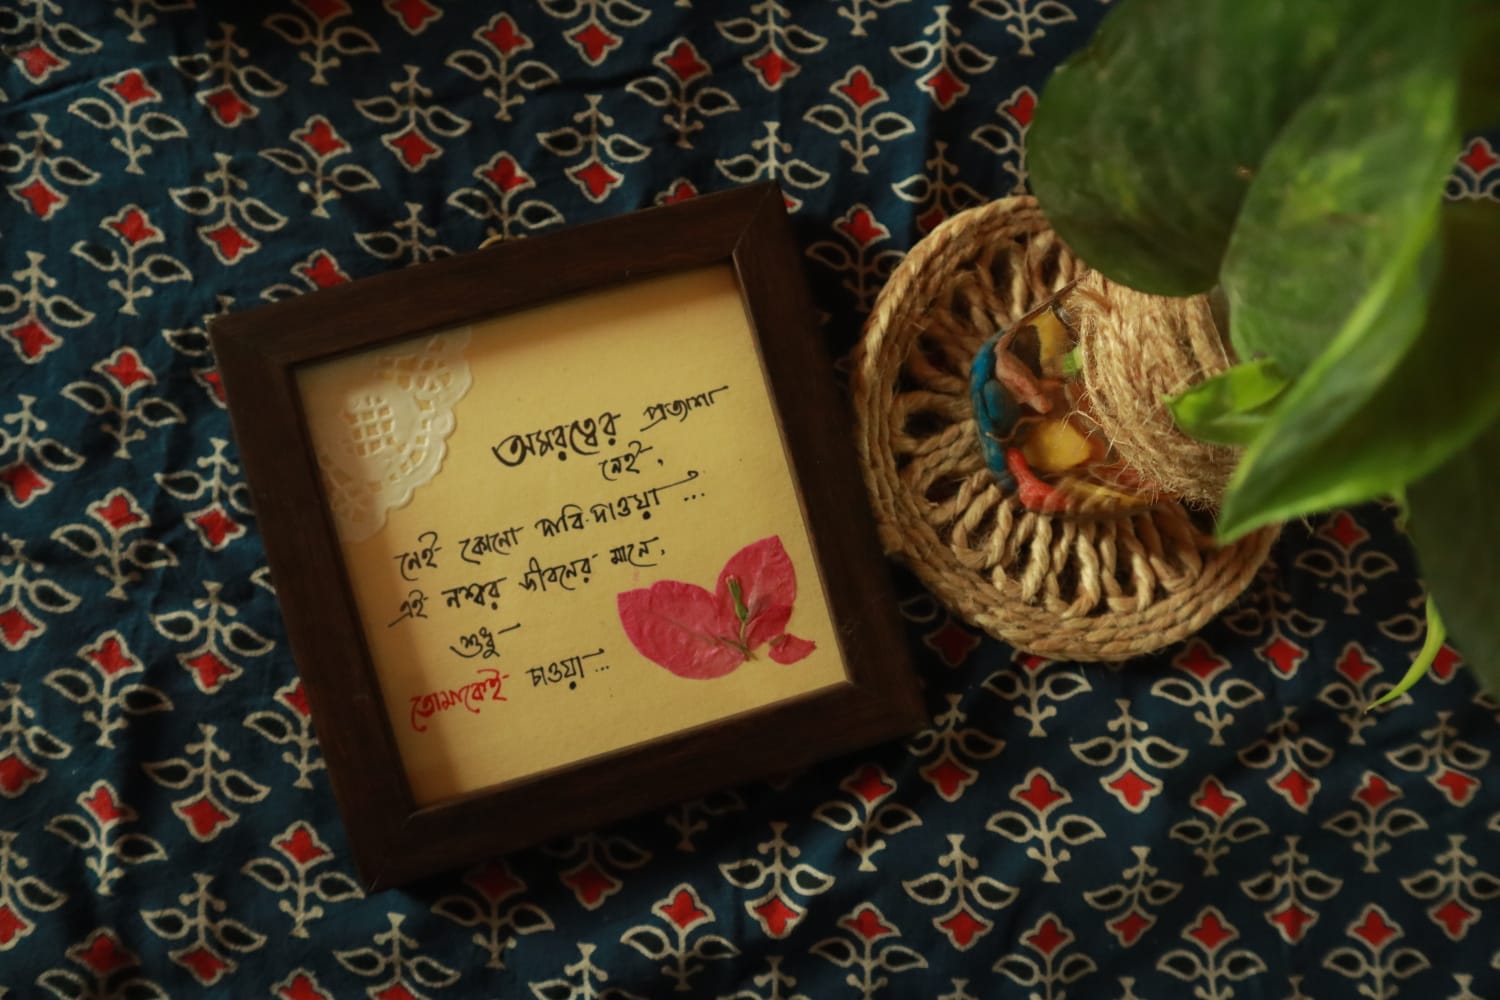 অমরত্বের প্রত্যাশা
নেই,
নেই কোনো দাবি-দাওয়া...
এই নশ্বর জীবনের মানে,
শুধু
তোমাকেই চাওয়া...